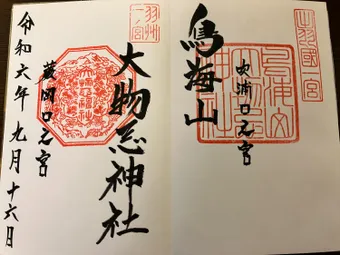 出羽國一宮
鳥海山
吹浦口之宮
羽州一ノ宮
大物忌神社
蕨岡口之宮
令和六年九月十六日